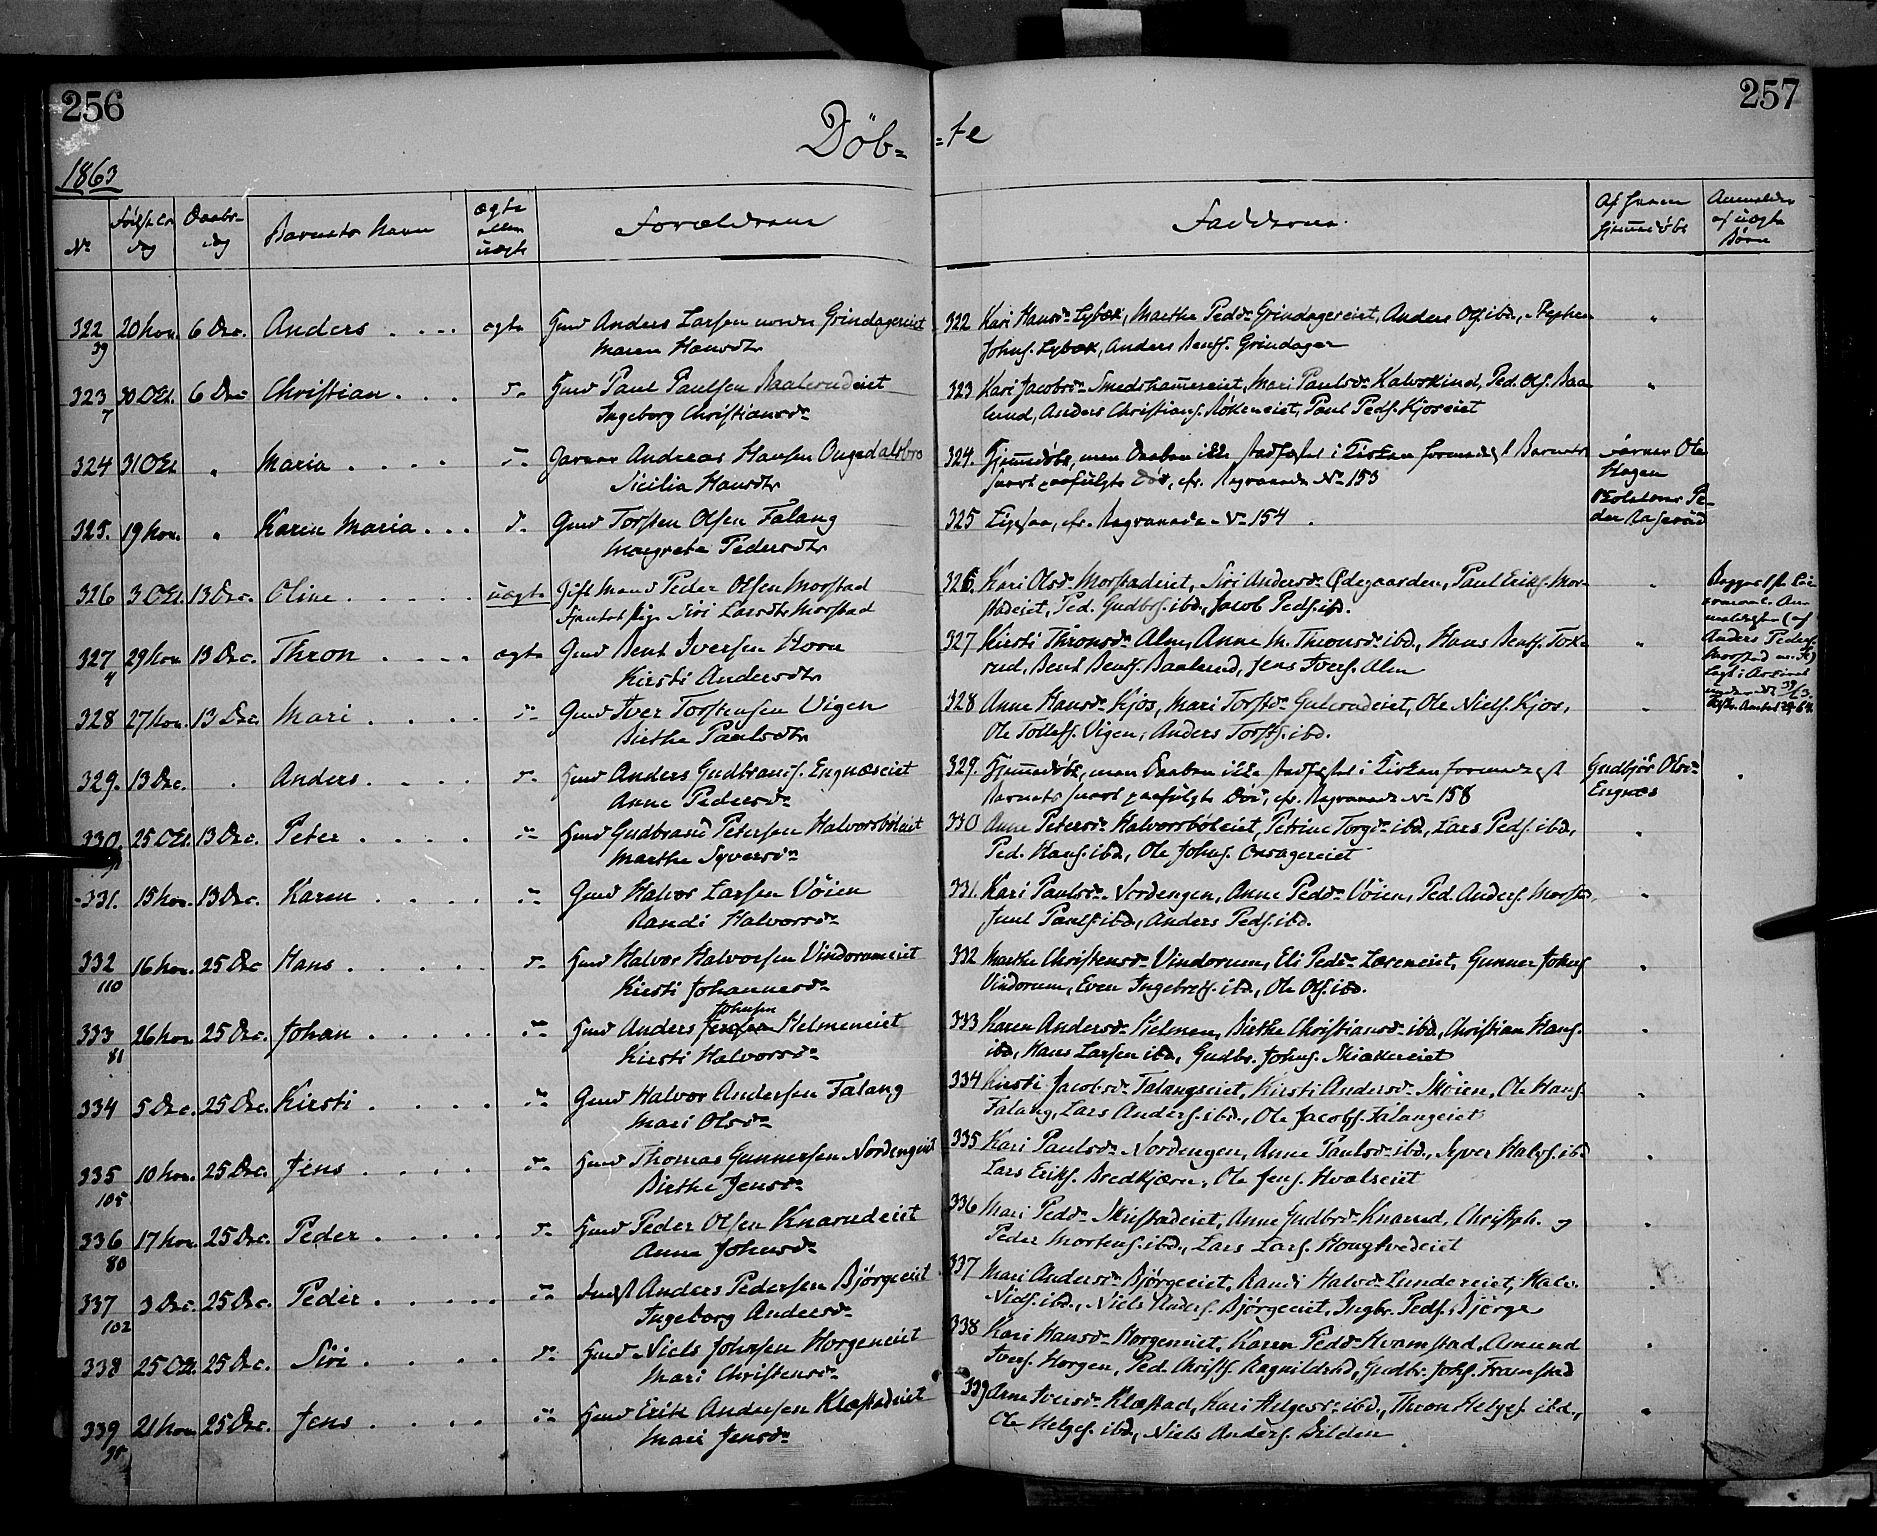 256
257
Döb-
-te
1863
No
Fødsels-dag
Daabs-dag
Barnets Navn
ægte eller uægte
Forældrene
Fadderne
Af hvem hjemmedøbt
Anmeldte af uægte Børn
322 20 Nov. 6 Dec. Anders . . . . ægte Hmd Anders Larsen Grindagereiet
39 Maren Hansdtr
322 Kari Hansd. Lybæk, Marthe Pedd. Grindagereiet, Anders Ols. ibd., Stephen
Johns. Lybæk, Anders Bents. Grindager
323 30 Oct. 6 Dec. Christian . . . d. Hmd Paul Paulsen Baalerudeiet
7 Ingeborg Christiansd.
323 Kari Jacobsd. Smedshammereiet, Mari Paulsd. Kalvskind, Ped. Ols. Baa-
lerud, Anders Christians. Røkeneiet, Paul Peds. Kjoseiet
324 31 Oct. " Maria . . . . d. Garver Andreas Hansen Ougedalsbro
Sicilia Hansdtr
324. Hjemmedøbt, men Daaben ikke stadfæstet i Kirken formedelst Barnets
snart paafulgte Død, cfr. Begravede No 153
Ole
Hagen
325. 19 Nov. " Karen Maria . . . d. Gmd Torsten Olsen Falang
Margrete Pedersdtr
325 Ligesaa, cfr. Begravede No 154.
Kirkesanger Pe-
der
326 3 Oct. 13 Dec. Oline . . . . . uægte Gift Mand Peder Olsen Morstad
Tjenestepige Siri Larsdtr Morstad
326. Kari Olsd. Morstadeiet, Siri Andersd. Ødegaarden, Paul Eriks. Mor-
stadeiet, Ped. Gudbrs. ibd., Jacob Peds. ibd.
Anders Peders.
Morstad
327 29 Nov. 13 Dec. Thron . . . . ægte Gmd Bent Iversen Hovn
4 Kirsti Andersdtr
327 Kirsti Thronsd. Alm, Anne M. Thronsd. ibd., Hans Bents. Toke-
rud, Bent Bents. Baalerud, Jens Ivers. Alm
328 27 Nov. 13 Dec. Mari . . . . . d. Gmd Iver Torstensen Vigen
Birthe Paulsdtr
328 Anne Hansd. Kjos, Mari Torstd. Gulerudeiet, Ole Niels. Kjos,
Ole Tollefs. Vigen, Anders Torsts. ibd.
329. 13 Dec. . Anders . . . . d. Hmd Anders Gudbrands. Engnæseiet
Anne Pedersd.
329. Hjemmedøbt, men Daaben ikke stadfæstet i Kirken formedelst
Barnets snart paafulgte Død, cfr. Begravede No 158
Gudbjør Olsd.
Engnæs
330 25 Oct. 13 Dec. Peter . . . . d. Hmd Gudbrand Petersen Halvorsbøleiet
Marthe Syversd.
330 Anne Petersd. Halvorsbøleiet, Petrine Torgd. ibd., Lars Peds. ibd.,
Ped. Hans. ibd., Ole Johns. Onsagereiet
331. 15 Nov. 13 Dec. Karen . . . . d. Gmd Halvor Larsen Vøien
Randi Halvorsd.
331. Kari Paulsd. Nordengen, Anne Pedd. Vøien, Ped. Anders. Morstad,
Juul Pauls. ibd., Anders Peds. ibd.
332 16 Nov. 25 Dec Hans . . . . . d. Hmd Halvor Halvorsen Vindorumeiet
110 Kirsti Johannesd.
332 Marthe Christensd. Vindorum, Eli Pedd. Løkeneiet, Gunner Johns.
Vindorum, Even Ingebrets. ibd., Ole Ols. ibd.
333 26 Nov. 25 Dec. Johan . . . . . d. Hmd Anders Jensen Johnsen Helmeneiet
81 Kirsti Halvorsd.
333 Karen Andersd. Helmen, Birthe Christiansd. ibd., Christian Hans.
ibd., Hans Larsen ibd., Gudbr. Johns. Skiakereiet
334 5 Dec. 25 Dec. Kirsti . . . . . d. Gmd Halvor Andersen Falang
Mari Olsd.
334 Kirsti Jacobsd. Falangseiet, Kirsti Andersd. Møien, Ole Hans.
Falang, Lars Anders. ibd., Ole Jacobs. Falangeiet
335 10 Nov. 25 Dec. Jens . . . . . d. Hmd Thomas Gunnersen Nordengeiet
105 Birthe Jensd.
335 Kari Paulsd. Nordengen, Anne Paulsd. ibd., Syver Halvs. ibd
Lars Eriks. Bredkjærn, Ole Jens. Hvalseiet
336 17 Nov. 25 Dec. Peder . . . . . d. Hmd Peder Olsen Knarudeiet
80 Anne Johnsd.
336 Mari Pedd. Skistadeiet, Anne Gudbrd. Knarud, Christoph. og
Peder Mortens. ibd., Lars Lars. Hougtvedeiet
337 3 Dec. 25 Dec. Peder . . . . . d. Indst Anders Pedersen Bjørgeeiet
102 Ingeborg Andersd.
337 Mari Andersd. Bjørgeeiet, Randi Halvd. Lundereiet, Halv.
Niels. ibd., Niels Anders. Bjørgeeiet, Ingbr. Peds. Bjørge
338 25 Oct. 25 Dec. Siri . . . . . d. Hmd Niels Johnsen Horgeneiet
Mari Christensd.
338 Kari Hansd. Horgeneiet, Karen Pedd. Kvamstad, Amund
Ivers. Horgen, Ped. Christs. Ragnildrud, Gudbr. Johs. Framstad
339 21 Nov. 25 Dec. Jens . . . . d. Hmd Erik Andersen Klæstadeiet
35 Mari Jensd.
339 Anne Iversd. Klæstad, Kari Helgesd. ibd., Thron Helges. ibd.,
Ole Helges. ibd., Niels Anders. Bilden